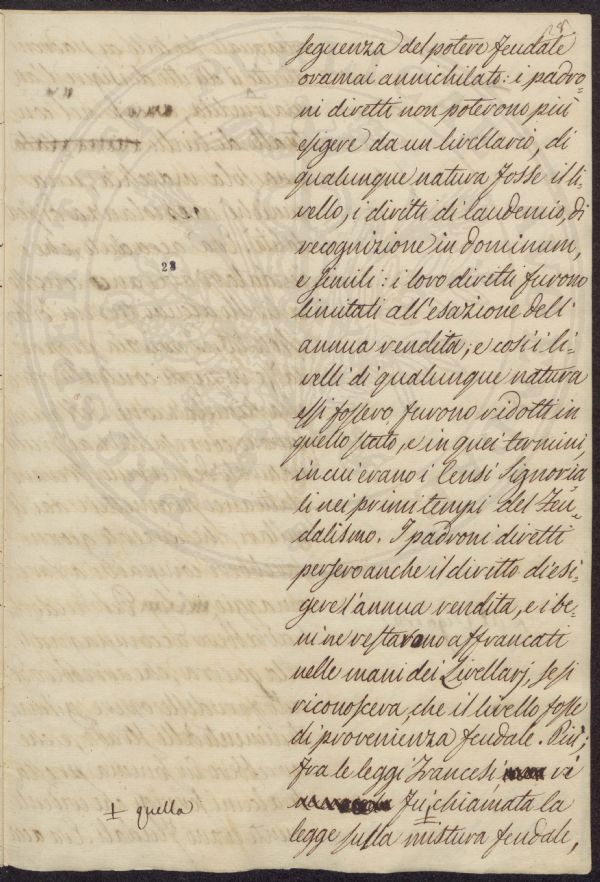 28.
seguenza del potere feudale
oramai annichilato: i padro-
ni diretti non poterono più
esigere da un livellario, di
qualunque natura fosse il li-
vello, i diritti di laudemio, di
recognizione in dominum,
e simili: i loro diretti furono
limitati all'esazione dell'
annua rendita, e così i li-
velli di qualunque natura
essi fossero, furono ridotti in
quello stato, e in quei termini,
in cui erano i Censi Signoria-
li nei primi tempi del Feu-
dalismo. I padroni diretti
persero anche il diritto di esi-
gere l'annua rendita, e i be-
ni ne restarono affrancati
nelle mani dei Livellarj, se si
riconosceva, che il livello fosse
di provenienza feudale. Più;
fra le leggi Francesi vi
fu, chiamata la
legge sulla mistura feudale,
28
quella